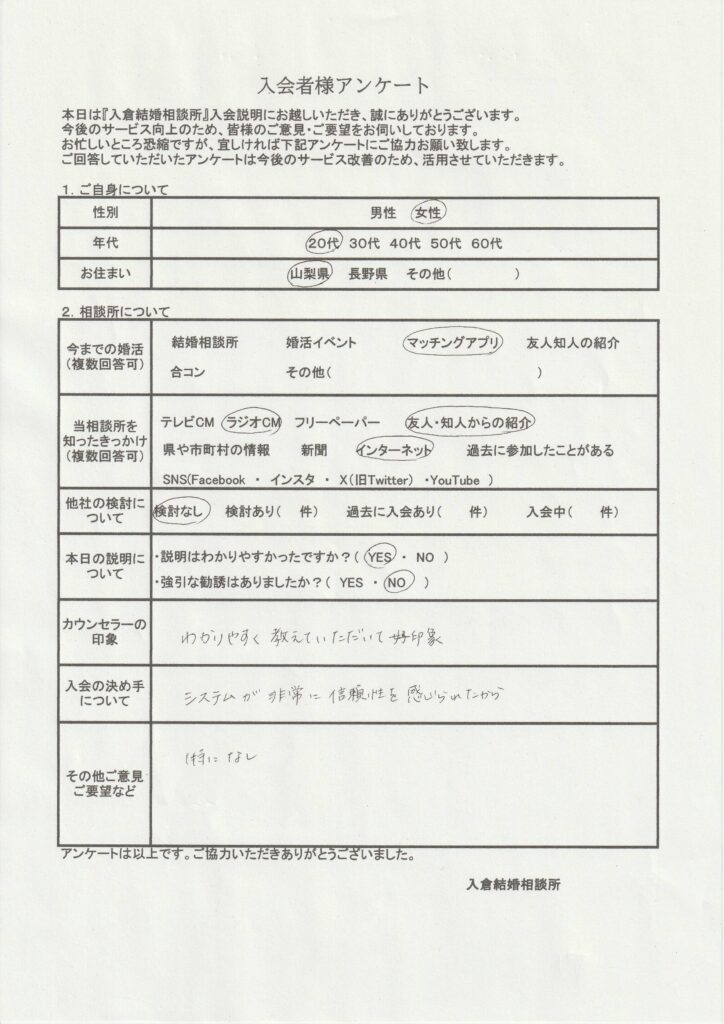 入会者様アンケート
本日は『入倉結婚相談所』入会説明にお越しいただき、誠にありがとうございます。
今後のサービス向上のため、皆様のご意見・ご要望をお伺いしております。
お忙しいところ恐縮ですが、宜しければ下記アンケートにご協力お願い致します。
ご回答していただいたアンケートは今後のサービス改善のため、活用させていただきます。
1. ご自身について
性別 男性 女性
年代 20代 30代 40代 50代 60代
お住まい 山梨県 長野県 その他( )
2. 相談所について
今までの婚活
(複数回答可)
結婚相談所 婚活イベント マッチングアプリ 友人知人の紹介
合コン その他( )
当相談所を
知ったきっかけ
(複数回答可)
テレビCM ラジオCM フリーペーパー 友人・知人からの紹介
県や市町村の情報 新聞 インターネット 過去に参加したことがある
SNS(Facebook ・ インスタ ・ X(旧Twitter) ・YouTube )
他社の検討に
ついて
検討なし 検討あり( 件) 過去に入会あり( 件) 入会中( 件)
本日の説明に
ついて
・説明はわかりやすかったですか?( YES ・ NO )
・強引な勧誘はありましたか?( YES ・ NO )
カウンセラーの
印象
わかりやすく教えていただいて好印象
入会の決め手
について
システムが非常に信頼性を感じられたから
その他ご意見
ご要望など
特になし
アンケートは以上です。ご協力いただきありがとうございました。
入倉結婚相談所